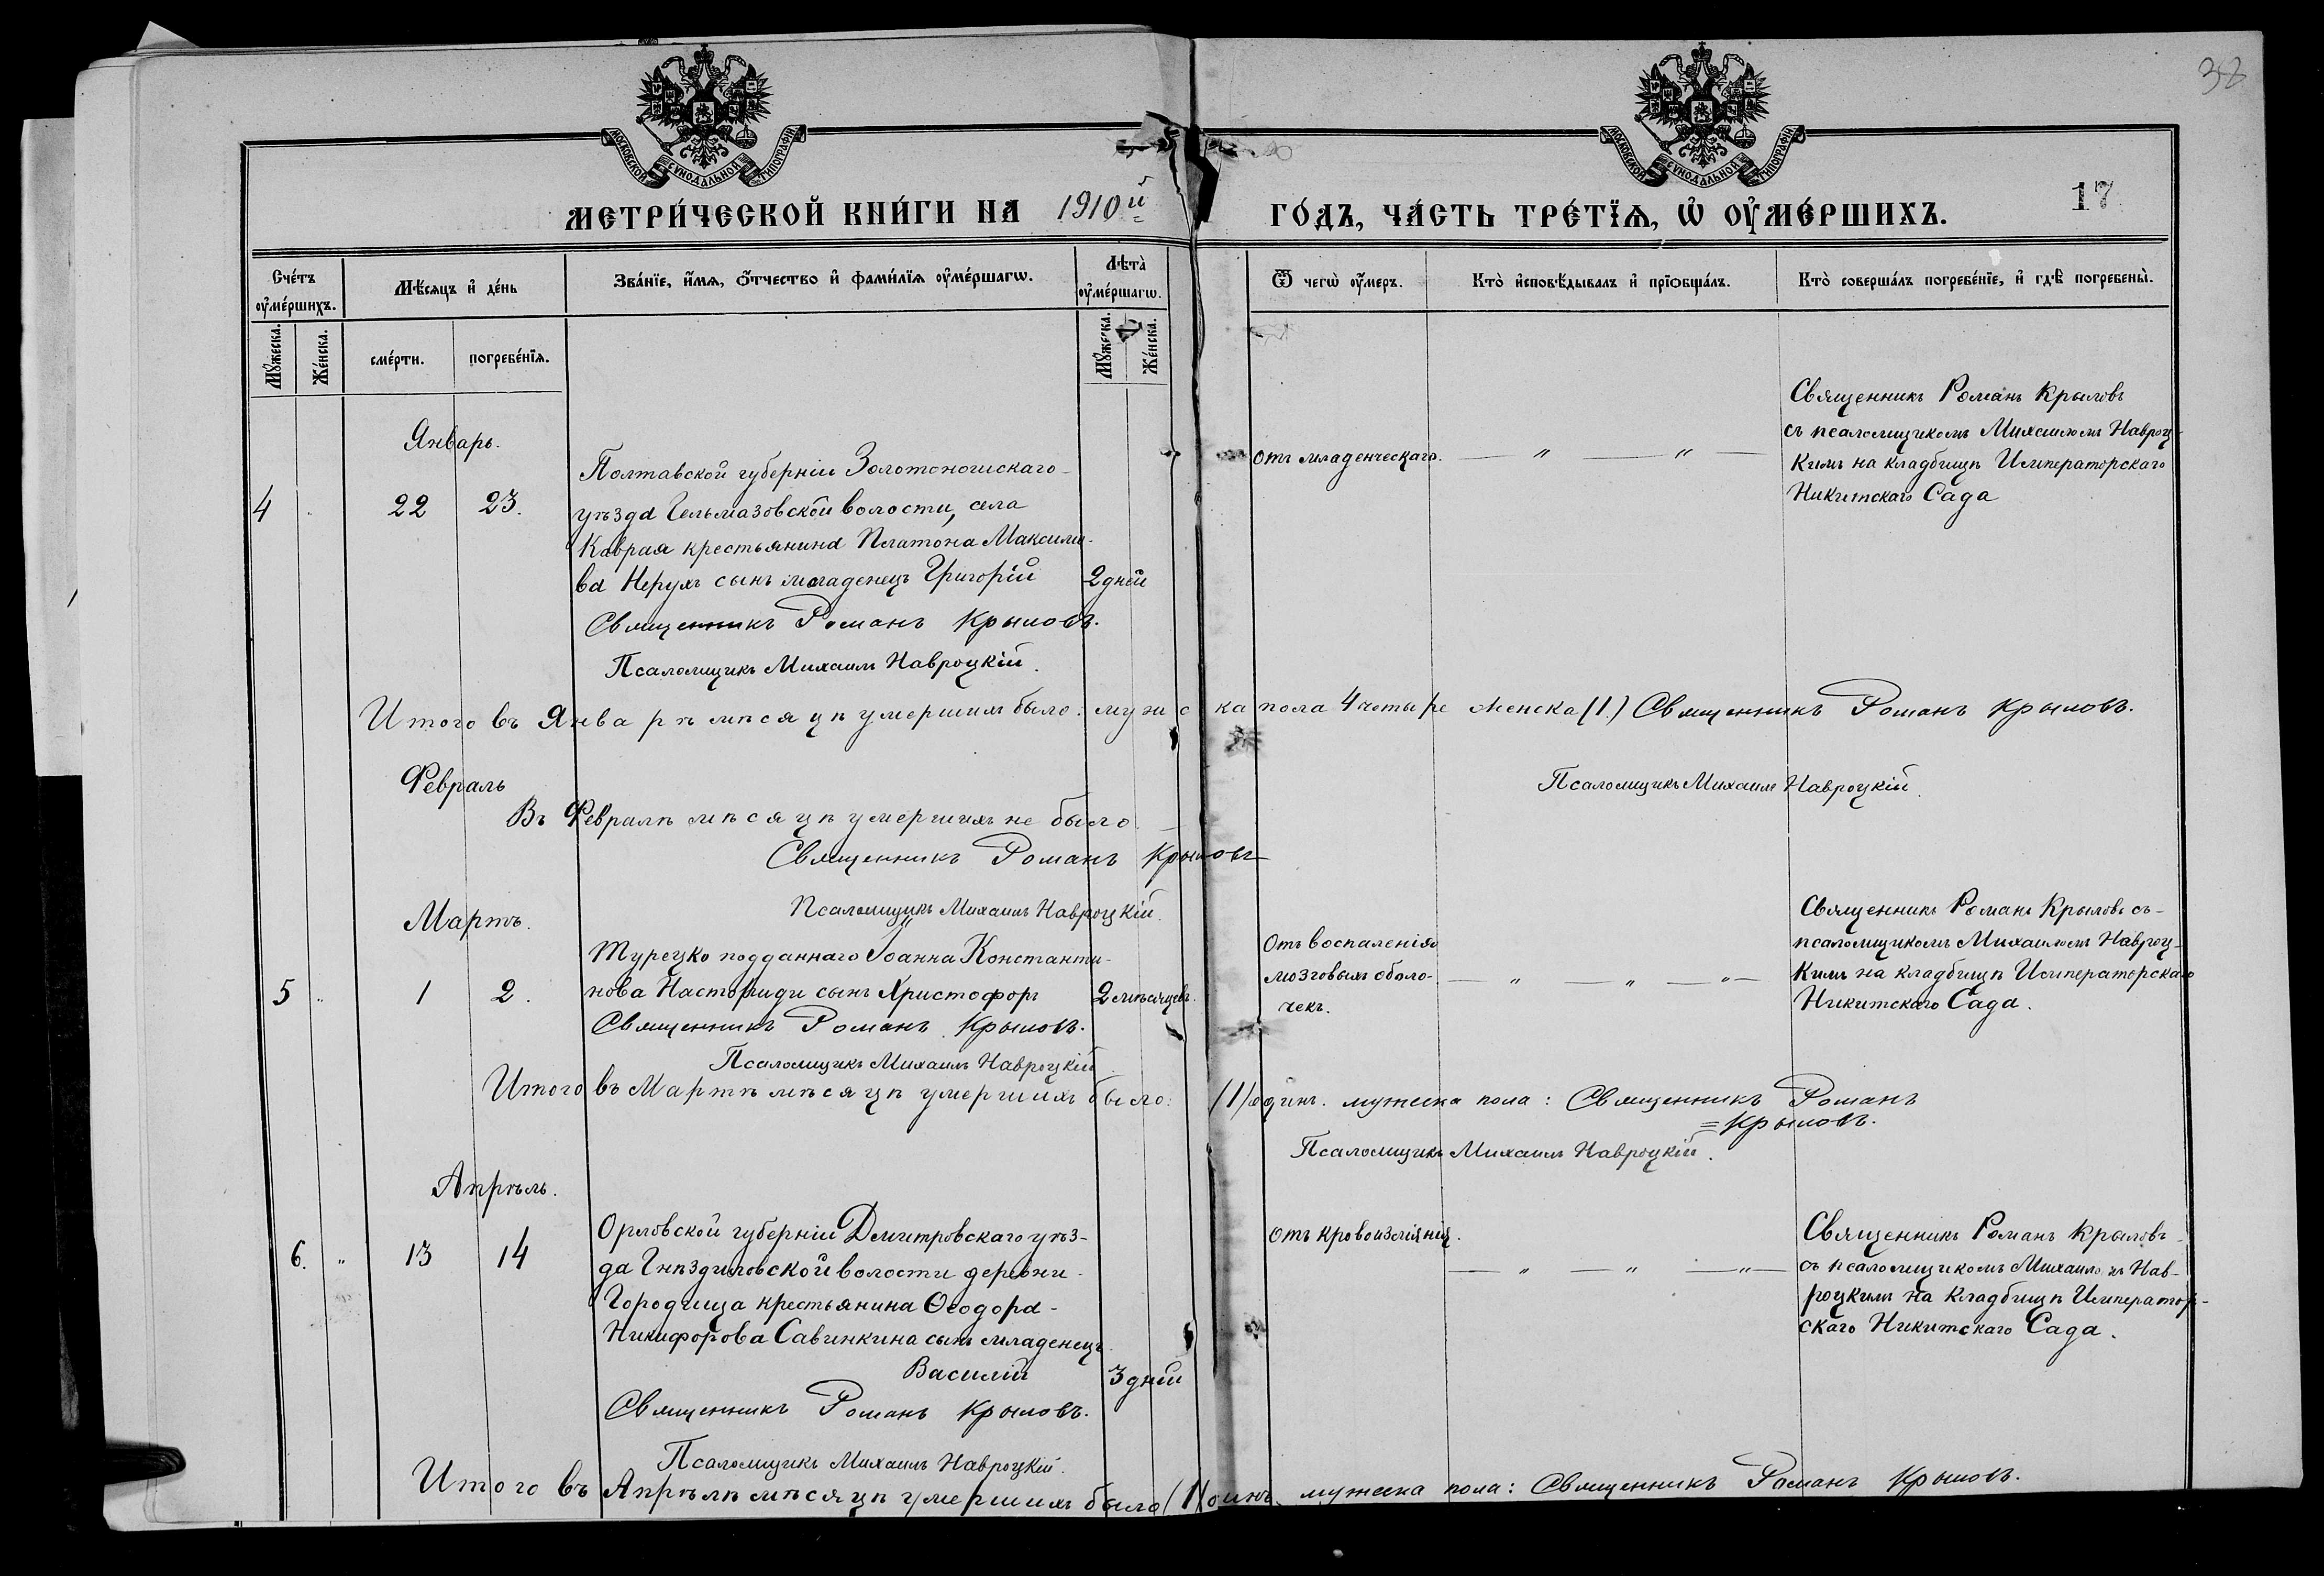 38
МОСКОВСКОЙ СѴНОДАЛЬНОЙ ТИПОГРАФІИ
МОСКОВСКОЙ СѴНОДАЛЬНОЙ ТИПОГРАФІИ
МЕТРИ́ЧЕСКОЙ КНИ́ГИ НА 1910й ГО́ДЪ, ЧА́СТЬ ТРЕ́ТЇѦ, Ѡ҆ ОУ҆МЕ́РШИХЪ.
17
Сче́тъ оу҆ме́ршихъ.
Мѣ́сѧцъ и҆ де́нь
Зва́нїе, и҆́мѧ, ѻ҆́тчество и҆ фами́лїѧ оу҆ме́ршагѡ.
Лѣ́та оу҆ме́ршагѡ.
Ѿ чегѡ̀ оу҆́меръ.
Кто̀ и҆сповѣ́дывалъ и҆ прїѻбща́лъ.
Кто̀ соверша́лъ погребе́нїе, и҆ гдѣ̀ погребены̀.
Мꙋ́жеска.
Же́нска.
сме́рти.
погребе́нїѧ.
Мꙋ́жеска.
Же́нска.
Январь.
4
22
23.
Полтавской губерніи Золотоношскаго
уѣзда Гельмазовской волости, села
Коврая крестьянина Платона Максимо-
ва Нерухъ сынъ младенецъ Григорій
2 дней
Священникъ Романъ Крыловъ.
Псаломщикъ Михаилъ Навроцкій.
Отъ младенческаго.
— " — "
Священникъ Романъ Крыловъ
съ псаломщикомъ Михаиломъ Навроц-
кимъ на кладбищѣ Императорскаго
Никитскаго Сада
Итого въ Январѣ мѣсяцѣ умершихъ было: мужска пола 4 четыре женска (1.) Священникъ Романъ Крыловъ.
Псаломщикъ Михаилъ Навроцкій.
Февраль
Въ Февралѣ мѣсяцѣ умершихъ не было.
Священникъ Романъ Крыловъ
Псаломщикъ Михаилъ Навроцкій.
Мартъ.
5
"
1
2.
Турецко подданнаго Іоанна Константи-
нова сынъ Христофоръ
2 мѣсяцевъ.
Священникъ Романъ Крыловъ.
Псаломщикъ Михаилъ Навроцкій
Отъ воспаленія
мозговыхъ оболо-
чекъ.
— " — " — " —
Священникъ Романъ Крыловъ съ-
псаломщикомъ Михаиломъ Навроц-
кимъ на кладбищѣ Императорскаго
Никитскаго Сада.
Итого въ Мартѣ мѣсяцѣ умершихъ было: (1) одинъ. мужеска пола: Священникъ Романъ
= Крыловъ.
Псаломщикъ Михаилъ Навроцкій.
Апрѣль.
6.
"
13
14
Орловской губерніи Дмитровскаго уѣз-
да Гнѣздиловской волости деревни
Городища крестьянина Ѳеодора
Никифорова Савинкина сынъ младенецъ
Василій
3 дней
Священникъ Романъ Крыловъ.
Псаломщикъ Михаилъ Навроцкій.
Отъ кровоизліянія.
— " — " — " —
Священникъ Романъ Крыловъ
съ псаломщикомъ Михаиломъ Нав-
роцкимъ на кладбищѣ Император-
скаго Никитскаго Сада.
Итого въ Апрѣлѣ мѣсяцѣ умершихъ было (1) мужеска пола: Священникъ Романъ Крыловъ.